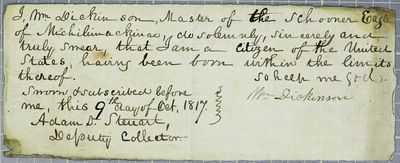 I, Wm Dickinson, Master of the Schooner
of Michilimackinac, do solemnly, sincerely and
truly swear that I am a Citizen of the United
States, having been born within the limits
thereof. So help me God.
Sworn & subscribed before
me, this 9th day of Oct, 1817. Wm Dickinson
Adam D. Steuart,
Deputy Collector